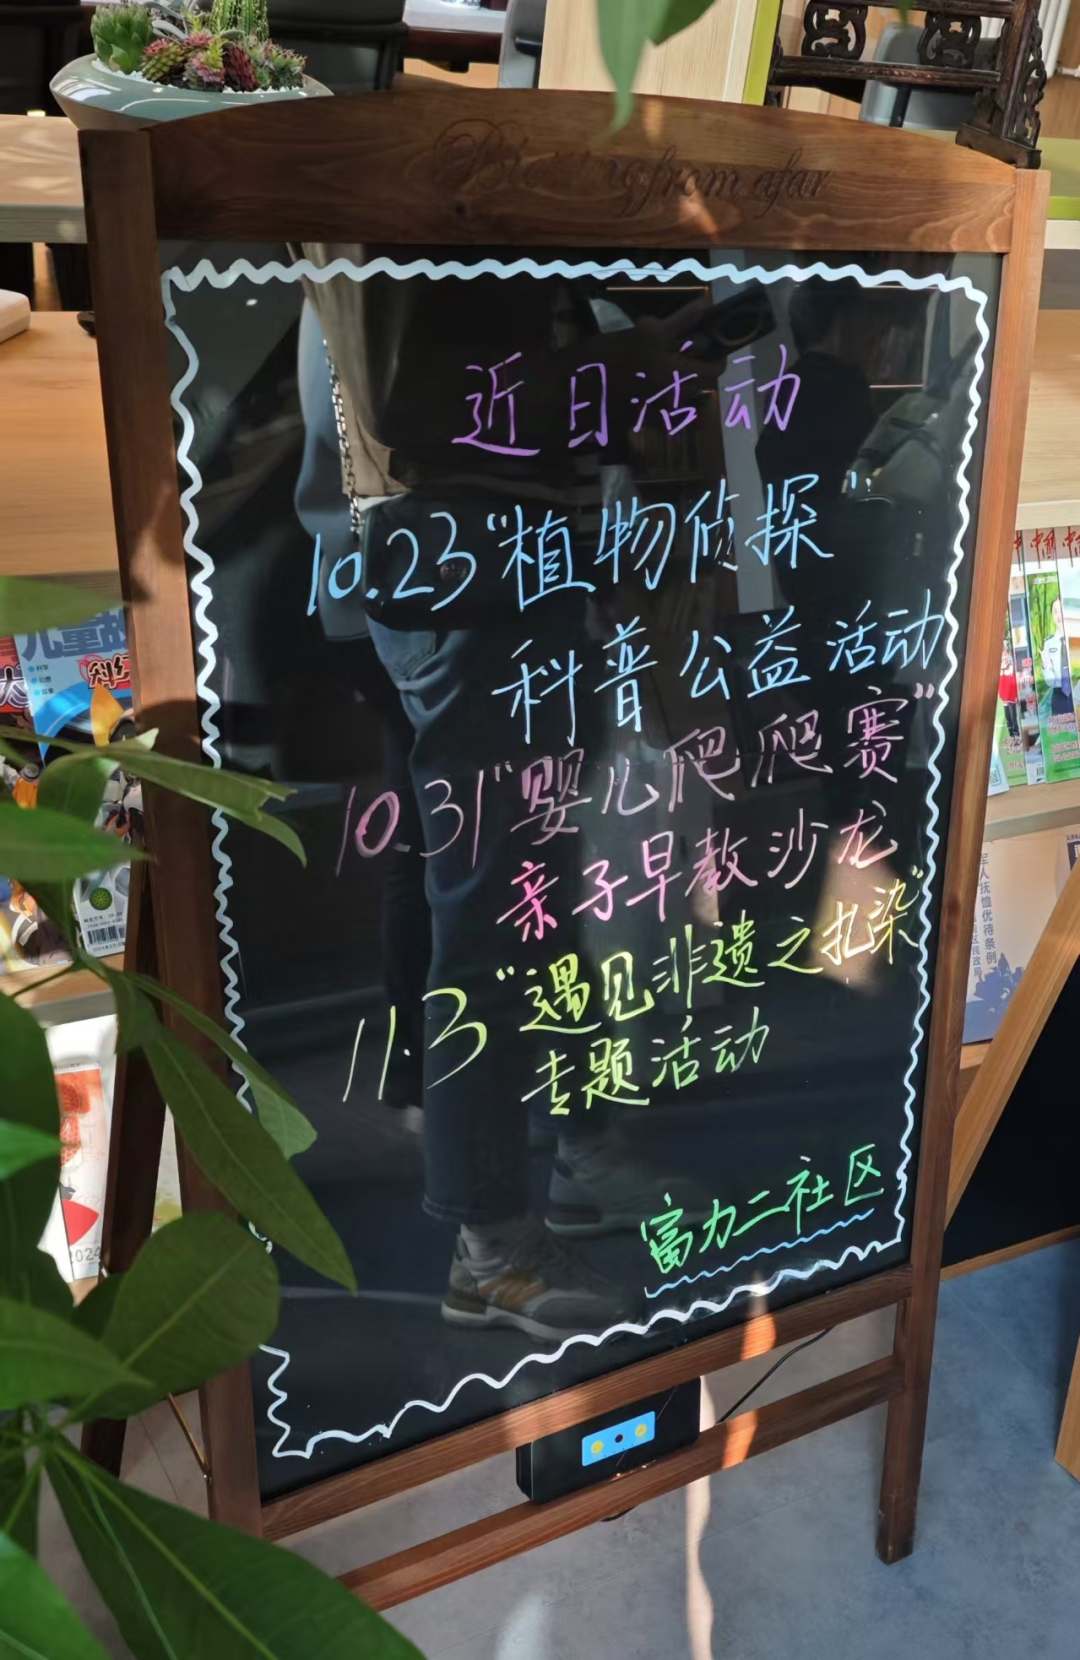 近日活动
10.23“植物侦探”
科普公益活动
10.31“婴儿爬爬赛”
亲子早教沙龙
11.3“遇见非遗之扎染”
专题活动
富力二社区
from afar
儿童故
军人抚恤优待条例
2024